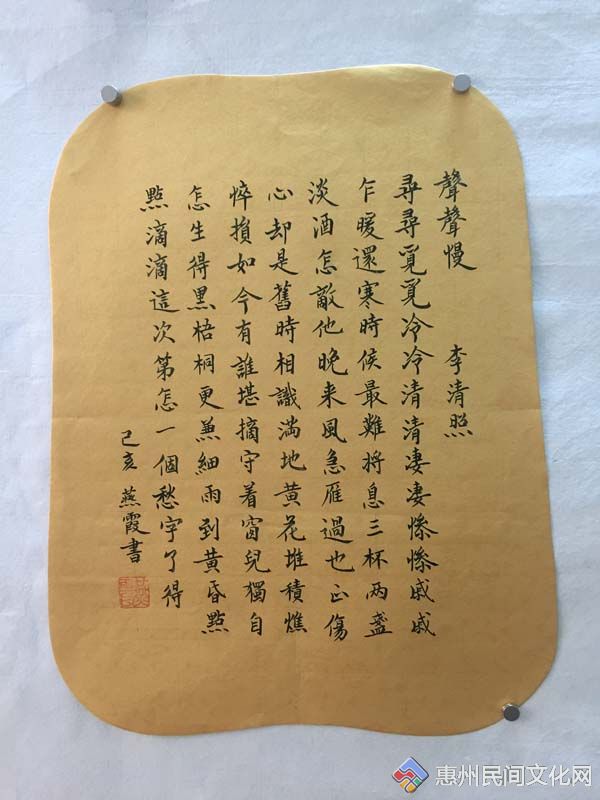 聲聲慢 李清照
尋尋覓覓冷冷清清凄凄慘慘戚戚
乍暖還寒時候最難將息三杯兩盞
淡酒怎敵他晚来風急雁過也正傷
心却是舊時相識滿地黄花堆積憔
悴損如今有誰堪摘守着窗兒獨自
怎生得黑梧桐更兼細雨到黄昏點
點滴滴這次第怎一個愁字了得
己亥 燕霞書
惠州民间文化网